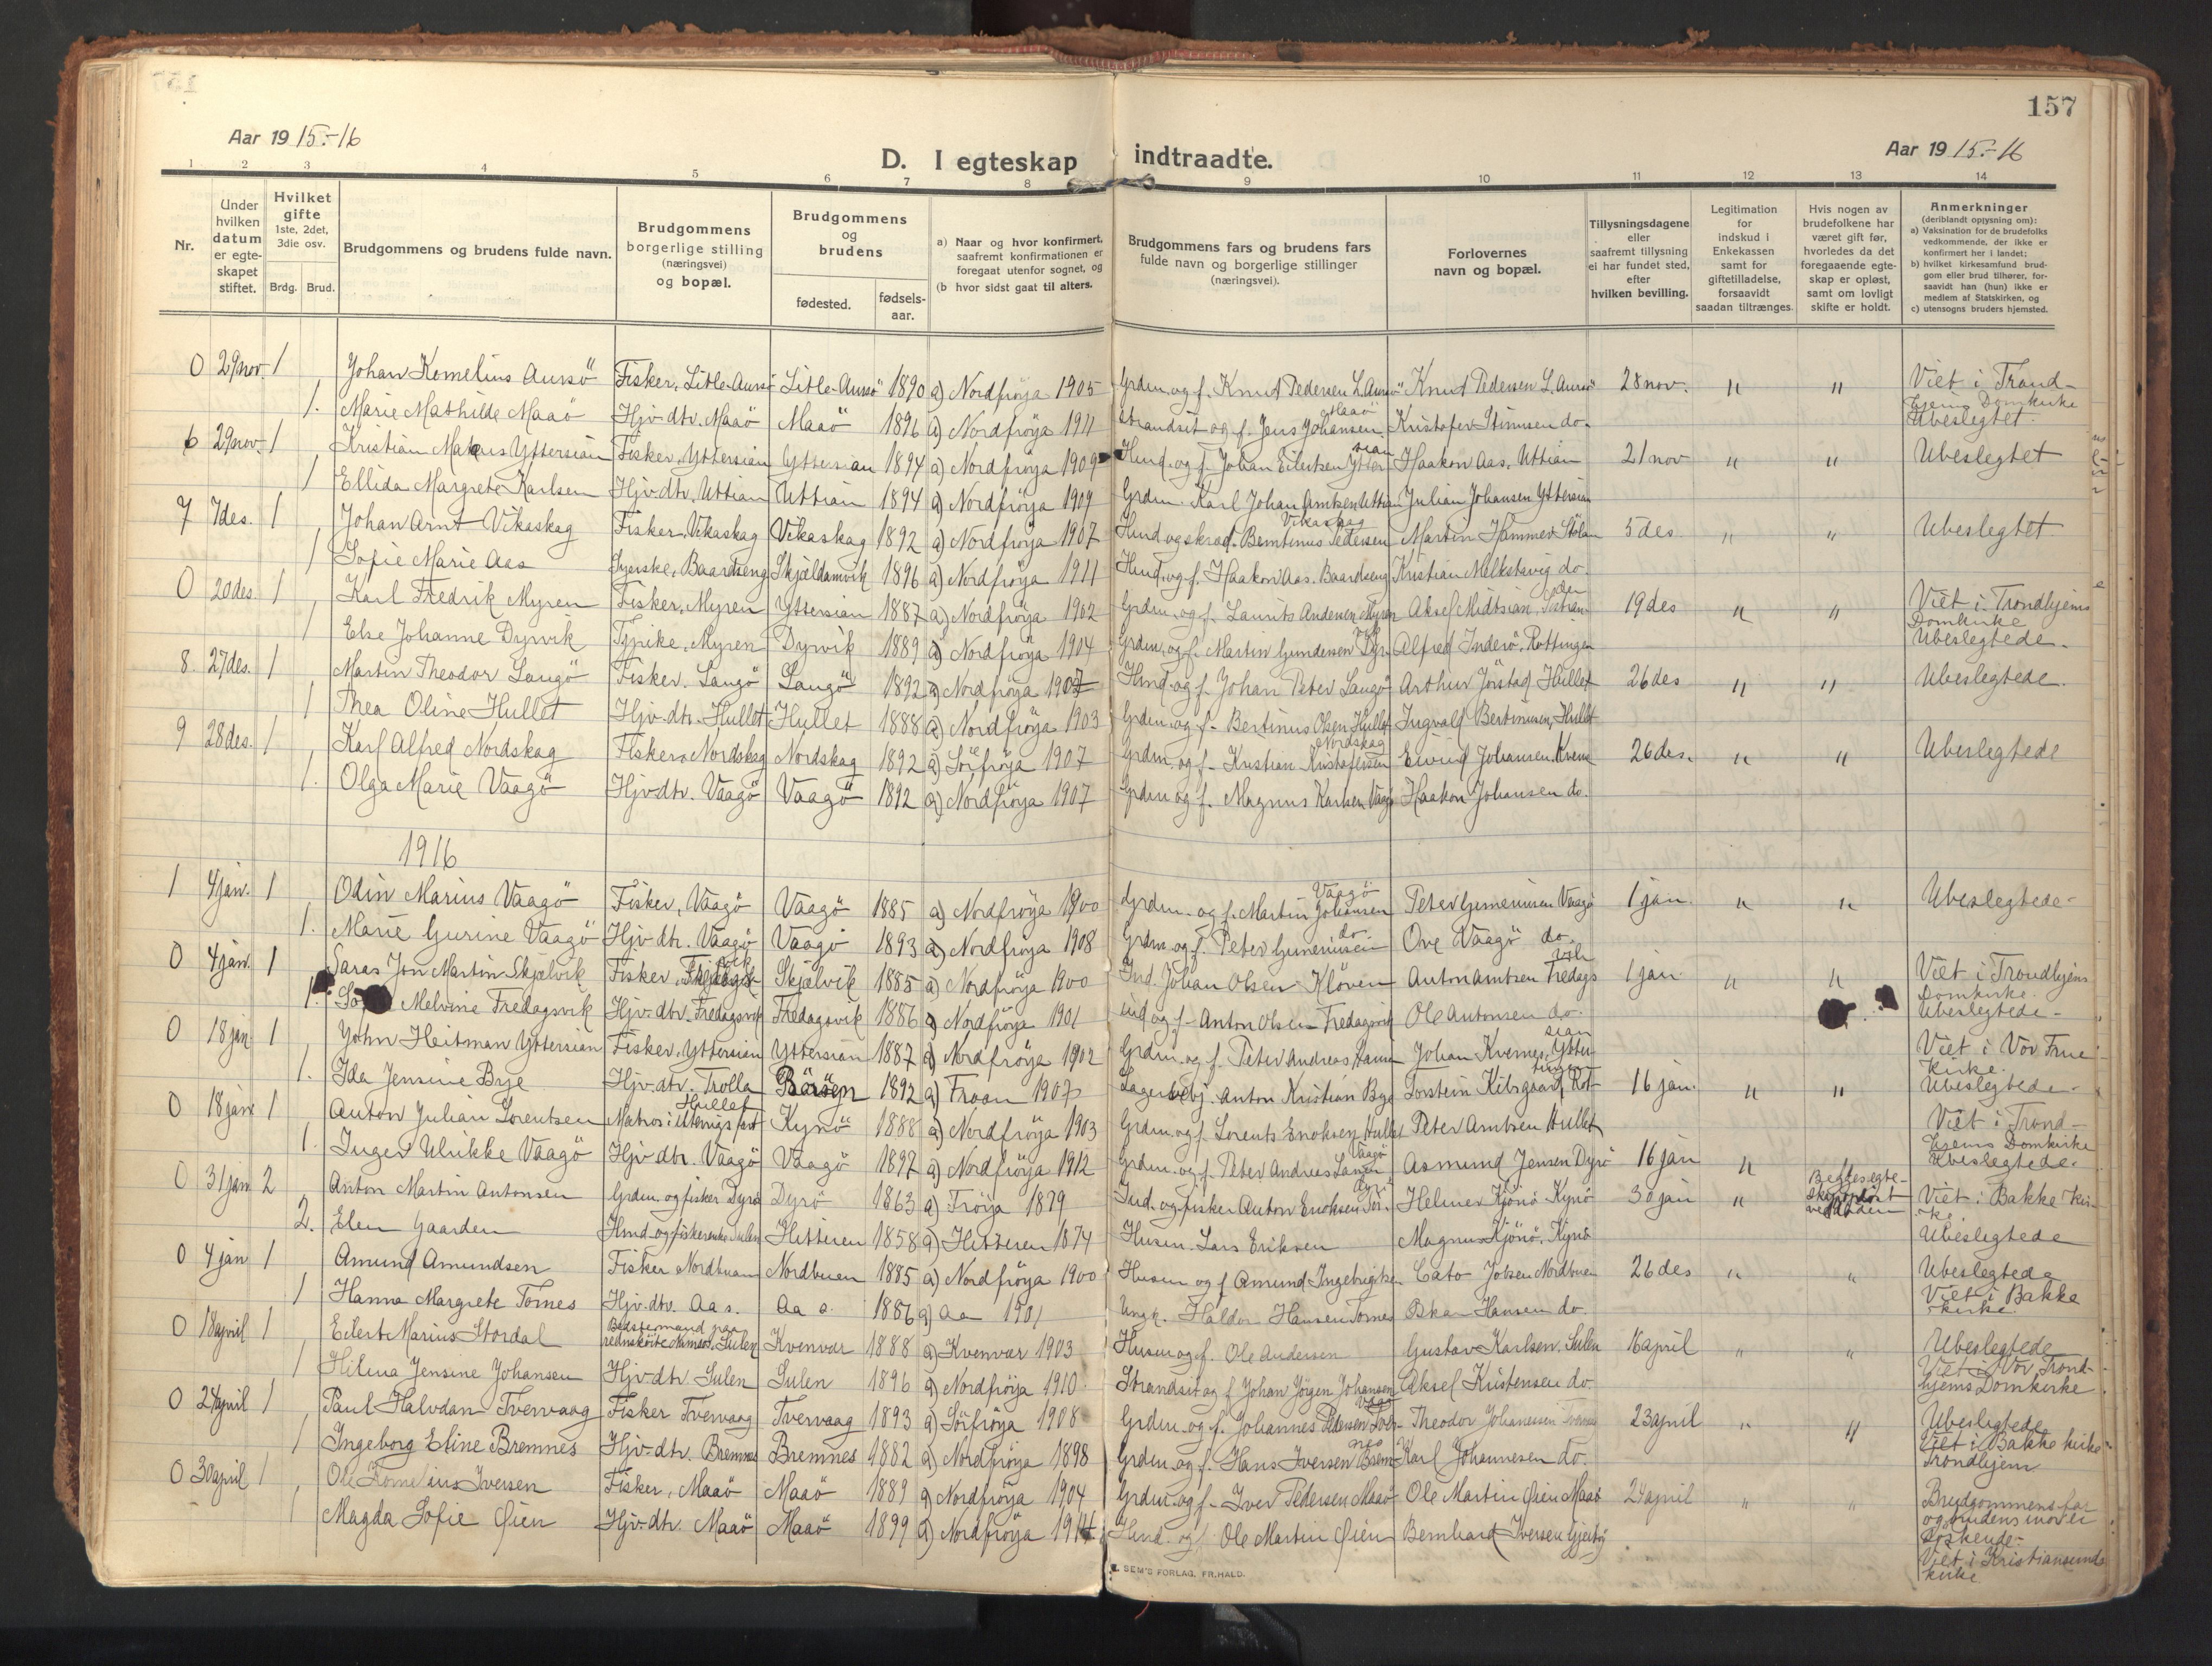 157
Aar 1915.-16
D. I egteskap indtraadte.
Aar 1915.-16
1 2 3 4 5 6 7 8 9 10 11 12 13 14
Nr.
Under hvilken datum er egteskapet stiftet.
Hvilket gifte 1ste, 2det, 3die osv.
Brdg. Brud.
Brudgommens og brudens fulde navn.
Brudgommens borgerlige stilling (næringsvei) og bopæl.
Brudgommens og brudens
fødested.
fødsels-aar.
a) Naar og hvor konfirmert, saafremt konfirmationen er foregaat utenfor sognet, og
(b hvor sidst gaat til alters.
Brudgommens fars og brudens fars fulde navn og borgerlige stillinger (næringsvei).
Forlovernes navn og bopæl.
Tillysningsdagene eller saafremt tillysning ei har fundet sted, efter hvilken bevilling.
Legitimation for indskud i Enkekassen samt for giftetilladelse, forsaavidt saadan tiltrænges.
Hvis nogen av brudefolkene har været gift før, hvorledes da det foregaaende egteskap er opløst, samt om lovligt skifte er holdt.
Anmerkninger (deriblandt oplysning om):
a) Vaksination for de brudefolks vedkommende, der ikke er konfirmert her i landet;
b) hvilket kirkesamfund brudgom eller brud tilhører, forsaavidt han (hun) ikke er medlem af Statskirken, og
c) utensogns bruders hjemsted.
0 29nov. 1 Johan Kornelius Aursö Fisker, Litle-Aursö Litle-Aursö 1890 a) Nordfröya 1905 Grdm. og f. Knut Pedersen L. Aursö Knut Pedersen L. Aursö 28 nov. " " Viet i Trondhjems Domkirke
1. Marie Mathilde Maaö Hjv. dtr. Maaö Maaö 1896 a) Nordfröya 1911 Strandsit og f. Jens Johansen Maaö Kristofer do. Ubeslegtet.
6 29nov. 1 Kristian Ytterian Fisker, Yttersian Yttersian 1894 a) Nordfröya 1909 Husmd. og f. Johan Eilertsen Yttersian Haakon Aas, Uttian 21 nov " " Ubeslegtet
1 Ellida Margrete Karlsen Hjv. dtr. Uttian Uttian 1894 a) Nordfröya 1909 Grdm. Karl Johan Arntsen Uttian Julian Johansen Yttersian
7 7des. 1 Johan Arnt Vikaskag Fisker, Vikaskag Vikaskag 1892 a) Nordfröya 1907 Husmd. og skrad. Berntinus Pedersen Vikaskag Martin Hammer 5 des " " Ubeslegtet
1 Sofie Marie Aas Syerske, Baardseng Skjældamvik 1896 a) Nordfröya 1911 Husmd. og f. Haakon Aas. Baardseng Kristian do.
0 20des. 1 Karl Fredrik Myren Fisker, Myren Yttersian 1887 a) Nordfröya 1902 Grdm. og f. Laurits Andersen Myren Aksel Midtsian 19 des " " Viet i Trondhjems Domkirke
1 Else Johanne Dyrvik Myren Dyrvik 1889 a) Nordfröya 1904 Grdm. og f. Martin Gundersen Dyrvik Alfred Inderö, Rottingen Ubeslegtede.
8 27des. 1 Martin Theodor Langö Fisker. Langö Langö 1892 a) Nordfröya 1907 Husmd. og f. Johan Peter Langö Arthur Jörstad Hullet 26 des " " Ubeslegtede.
1 Thea Oline Hullet Hjv. dtr. Hullet Hullet 1888 a) Nordfröya 1903 Grdm. og f. Bertinus Olsen Hullet Ingvald Bertinusen, Hullet
9 28des. 1 Karl Alfred Nordskag Fisker, Nordskag Nordskag 1892 a) Sörfröya 1907 Grdm. og f. Kristian Kristofersen Nordskag Eivind Johansen, 26 des. " " Ubeslegtede
1. Olga Marie Vaagö Hjv. dtr. Vaagö Vaagö 1892 a) Nordfröya 1907 Grdm. og f. Magnus Karlsen Vaagö Haakon Johansen do.
1916
1 4 jan. 1 Odin Marius Vaagö Fisker, Vaagö Vaagö 1885 a) Nordfröya 1900 Grdm. og f. Martin Johansen Vaagö Peter Vaagö 1 jan. " " Ubeslegtede
1. Marie Gurine Vaagö Hjv. dtr. Vaagö Vaagö 1893 a) Nordfröya 1908 Grdm. og f. Peter do. Ove Vaagö do.
0 4 jan. 1 Jon Martin Skjælvik Fisker, Skjælvik 1885 a) Nordfröya 1900 Ind. Johan Olsen Klöven Anton Arntsen Fredagsvik 1 jan. " " Viet i Trondhjems Domkirke.
1. Melvine Fredagsvik Hjv. dtr. Fredagsvik Fredagsvik 1886 a) Nordfröya 1901 ind og f. Anton Olsen Fredagsvik Ole Antonsen do. Ubeslegtede
0 18 jan. 1 John Heitman Yttersian Fisker, Yttersian Yttersian 1887 a) Nordfröya 1902 Grdm. og f. Peter Andreas Hansen Johan Kvernes, Yttersian Viet i Vor Frue kirke.
1. Ida Jensine Bye Hjv. dtr. Trolla Börsen 1892 a) Froan 1907 Anton Kristian Bye Torstein 16 jan. " " Ubeslegtede.
0 18 jan. 1 Anton Julian Lorentsen Matros Hullet Kynö 1888 a) Nordfröya 1903 Grdm. og f. Lorents Enoksen Hullet Peter Arntsen Hullet Viet i Trondhjems Domkirke
1. Inger Ulrikke Vaagö Hjv. dtr. Vaagö Vaagö 1897 a) Nordfröya 1912 Grdm. og f. Peter Andreas Larsen Vaagö Asmund Jensen Dyrö 16 jan " Ubeslegtede.
0 31 jan 2 Anton Martin Antonsen Grdm. og fisker Dyrö Dyrö 1863 a) Fröya 1879 Ind. og fisker Anton Enoksen Helmer Kjönö Kynö 30 jan " Begges egteskap oplöst ved döden Viet i Bakke kirke
2. Elen Gaarden Husmd. og fiskerenke Sulen Hitteren 1858 a) Hitteren 1874 Husm. Lars Eriksen Magnus Kjönö, Kynö Ubeslegtede
0 4 jan 1 Amund Amundsen Fisker Nordbuen Nordbuen 1885 a) Nordfröya 1900 Husm og f. Amund Ingebrigtsen Cato Jobsen Nordbuen 26 des " " Ubeslegtede
1 Hanna Margrete Tornes Hjv. dtr. Aa s. Aa s. 1886 a) Aa 1901 Ungk. Haldor Hansen Tornes Hansen do. Viet i Bakke kirke
0 18 april 1 Eilert Marius Stordal Bedstemand paa Sulen Kvenvær 1888 a) Kvenvær 1903 Husm og f. Ole Andersen Gustav Karlsen. Sulen 16 april " " Ubeslegtede
1 Hilma Jensine Johansen Hjv. dtr. Sulen Sulen 1896 a) Nordfröya 1910. Strandsit og f. Johan Jörgen Johansen Aksel Kristensen do. Viet i Vor Trondhjems Domkirke
0 24 april 1 Paul Halvdan Tvervaag Fisker Tvervaag Tvervaag 1893 a) Sörfröya 1908 Grdm. og f. Johannes Pedersen Tvervaag Theodor Johannesen 23 april " " Ubeslegtede
1 Ingeborg Eline Bremnes Hjv. dtr. Bremnes Bremnes 1882 a) Nordfröya 1898 Grdm. og f. Hans Iversen Bremnes Karl Johannesen do. Viet i Bakke kirke Trondhjem
0 30 april 1 Ole Kornelius Iversen Fisker, Maaö Maaö 1889 a) Nordfröya 1904 Grdm. og f. Iver Pedersen Maaö Ole Martin Øien Maaö 24 april " " Brudgommens far og brudens mor er söskende.
1 Magda Sofie Øien Hjv. dtr. Maaö Maaö 1899 a) Nordfröya 1914 Husmd. og Ole Martin Øien Bernhard Iversen Viet i Kristiansunds kirke
E. SEM'S FORLAG, FR.HALD.